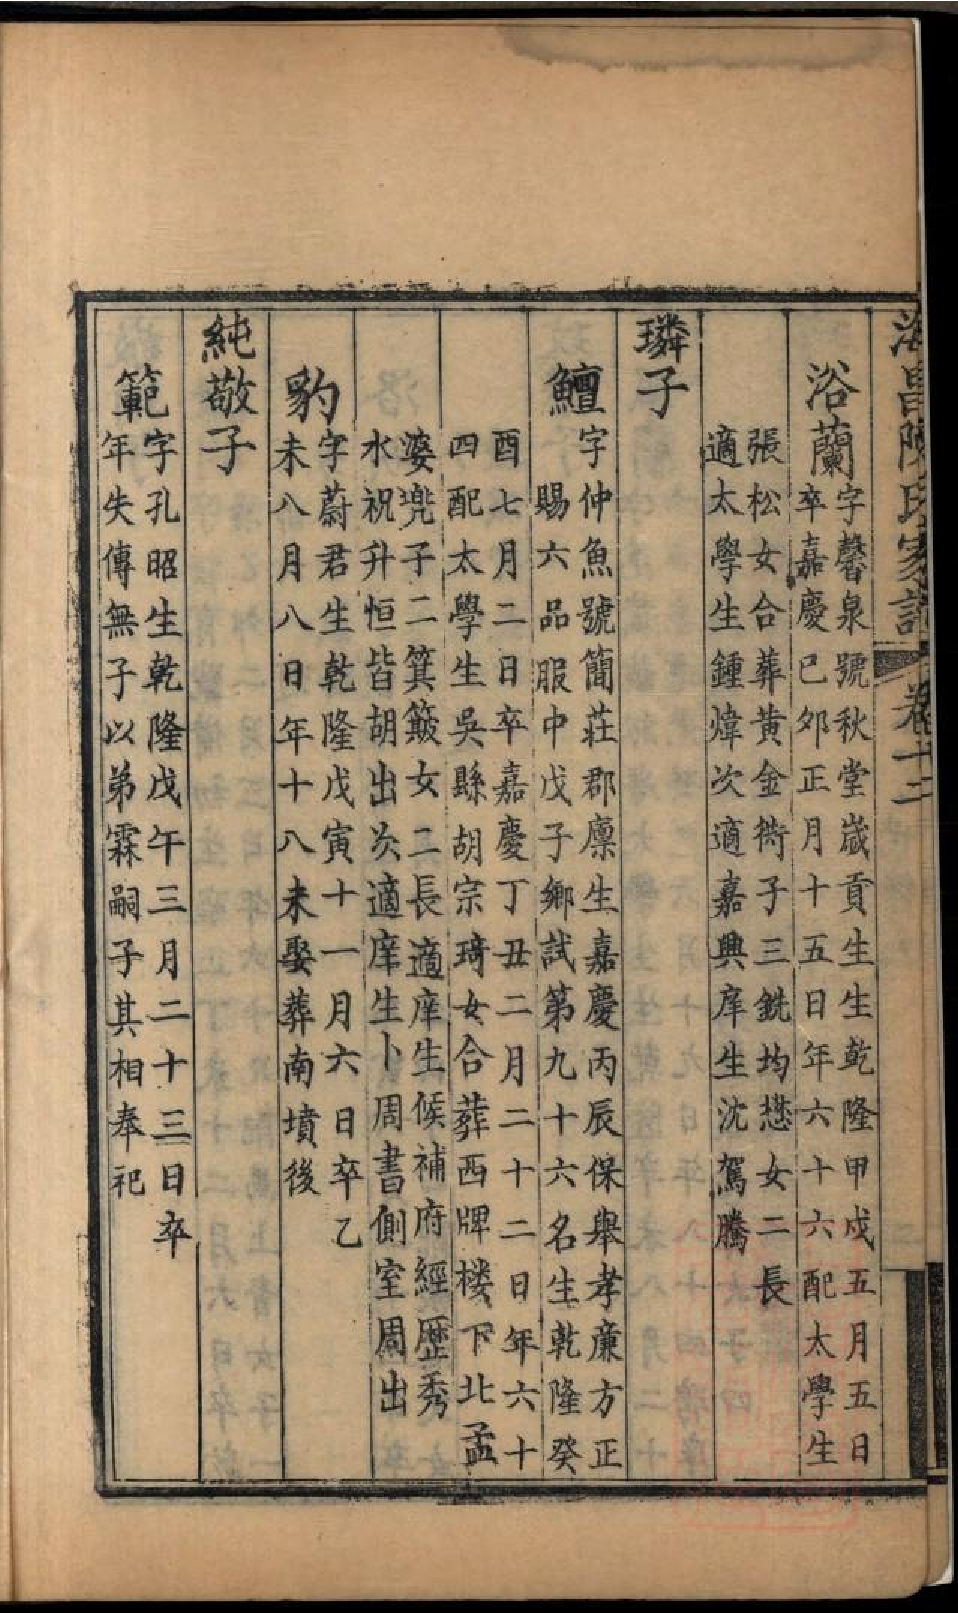 海昌陳氏家譜 卷十二
浴蘭
字馨泉號秋堂歲貢生生乾隆甲戌五月五日
卒嘉慶巳夘正月十五日年六十六配太學生
張松女合葬黄金衖子三銑均懋女二長
適太學生鍾煒次適嘉興庠生沈駕騰
璘子
鱣
字仲魚號簡莊郡廪生嘉慶丙辰保舉孝廉方正
賜六品服中戊子鄉試第九十六名生乾隆癸
酉七月二日卒嘉慶丁丑二月二十二日年六十
四配太學生吳縣胡宗琦女合葬西牌楼下北孟
婆兠子二箕簸女二長適庠生候補府經歷秀
水祝升恒皆胡出次適庠生卜周書側室周出
豹
字蔚君生乾隆戊寅十一月六日卒乙
未八月八日年十八未娶葬南墳後
純敬子
範
字孔昭生乾隆戊午三月二十三日卒
年失傳無子以弟霖嗣子其相奉祀